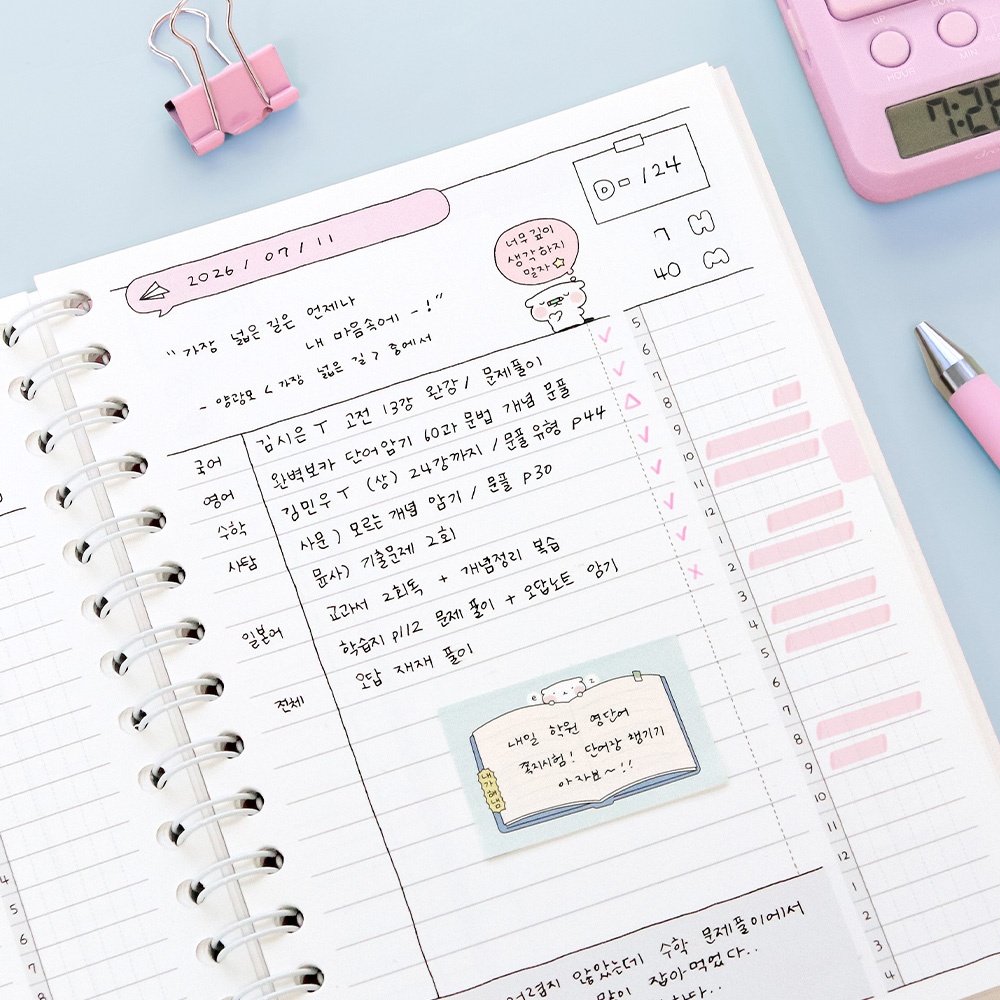 2026 / 07 / 11
D- 124
7 H
40 M
너무 깊이
생각하지
말자
"가장 넓은 길은 언제나
내 마음속에 - !"
- 양광모 < 가장 넓은 길 > 중에서
국어 김시은 T 고전 13강 완강 / 문제풀이
영어 완벽보카 단어암기 60과 문법 개념 문풀
수학 김민우 T (상) 24강까지 / 문풀 유형 p44
사탐 사문) 모르는 개념 암기 / 문풀 p30
윤사) 기출문제 2회
일본어 교과서 2회독 + 개념정리 복습
학습지 p112 문제 풀이 + 오답노트 암기
전체 오답 재재 풀이
내일 학원 영단어
쪽지시험! 단어장 챙기기
아자뵤~!!
내
가
해
냄
5
6
7
8
9
10
11
12
1
2
3
4
5
6
7
8
9
10
11
12
1
2
3
4
않았는데 수학 문제풀이에서
많이 잡아먹었다..
UP
HOUR
MIN
7:28
4
5
6
7
8